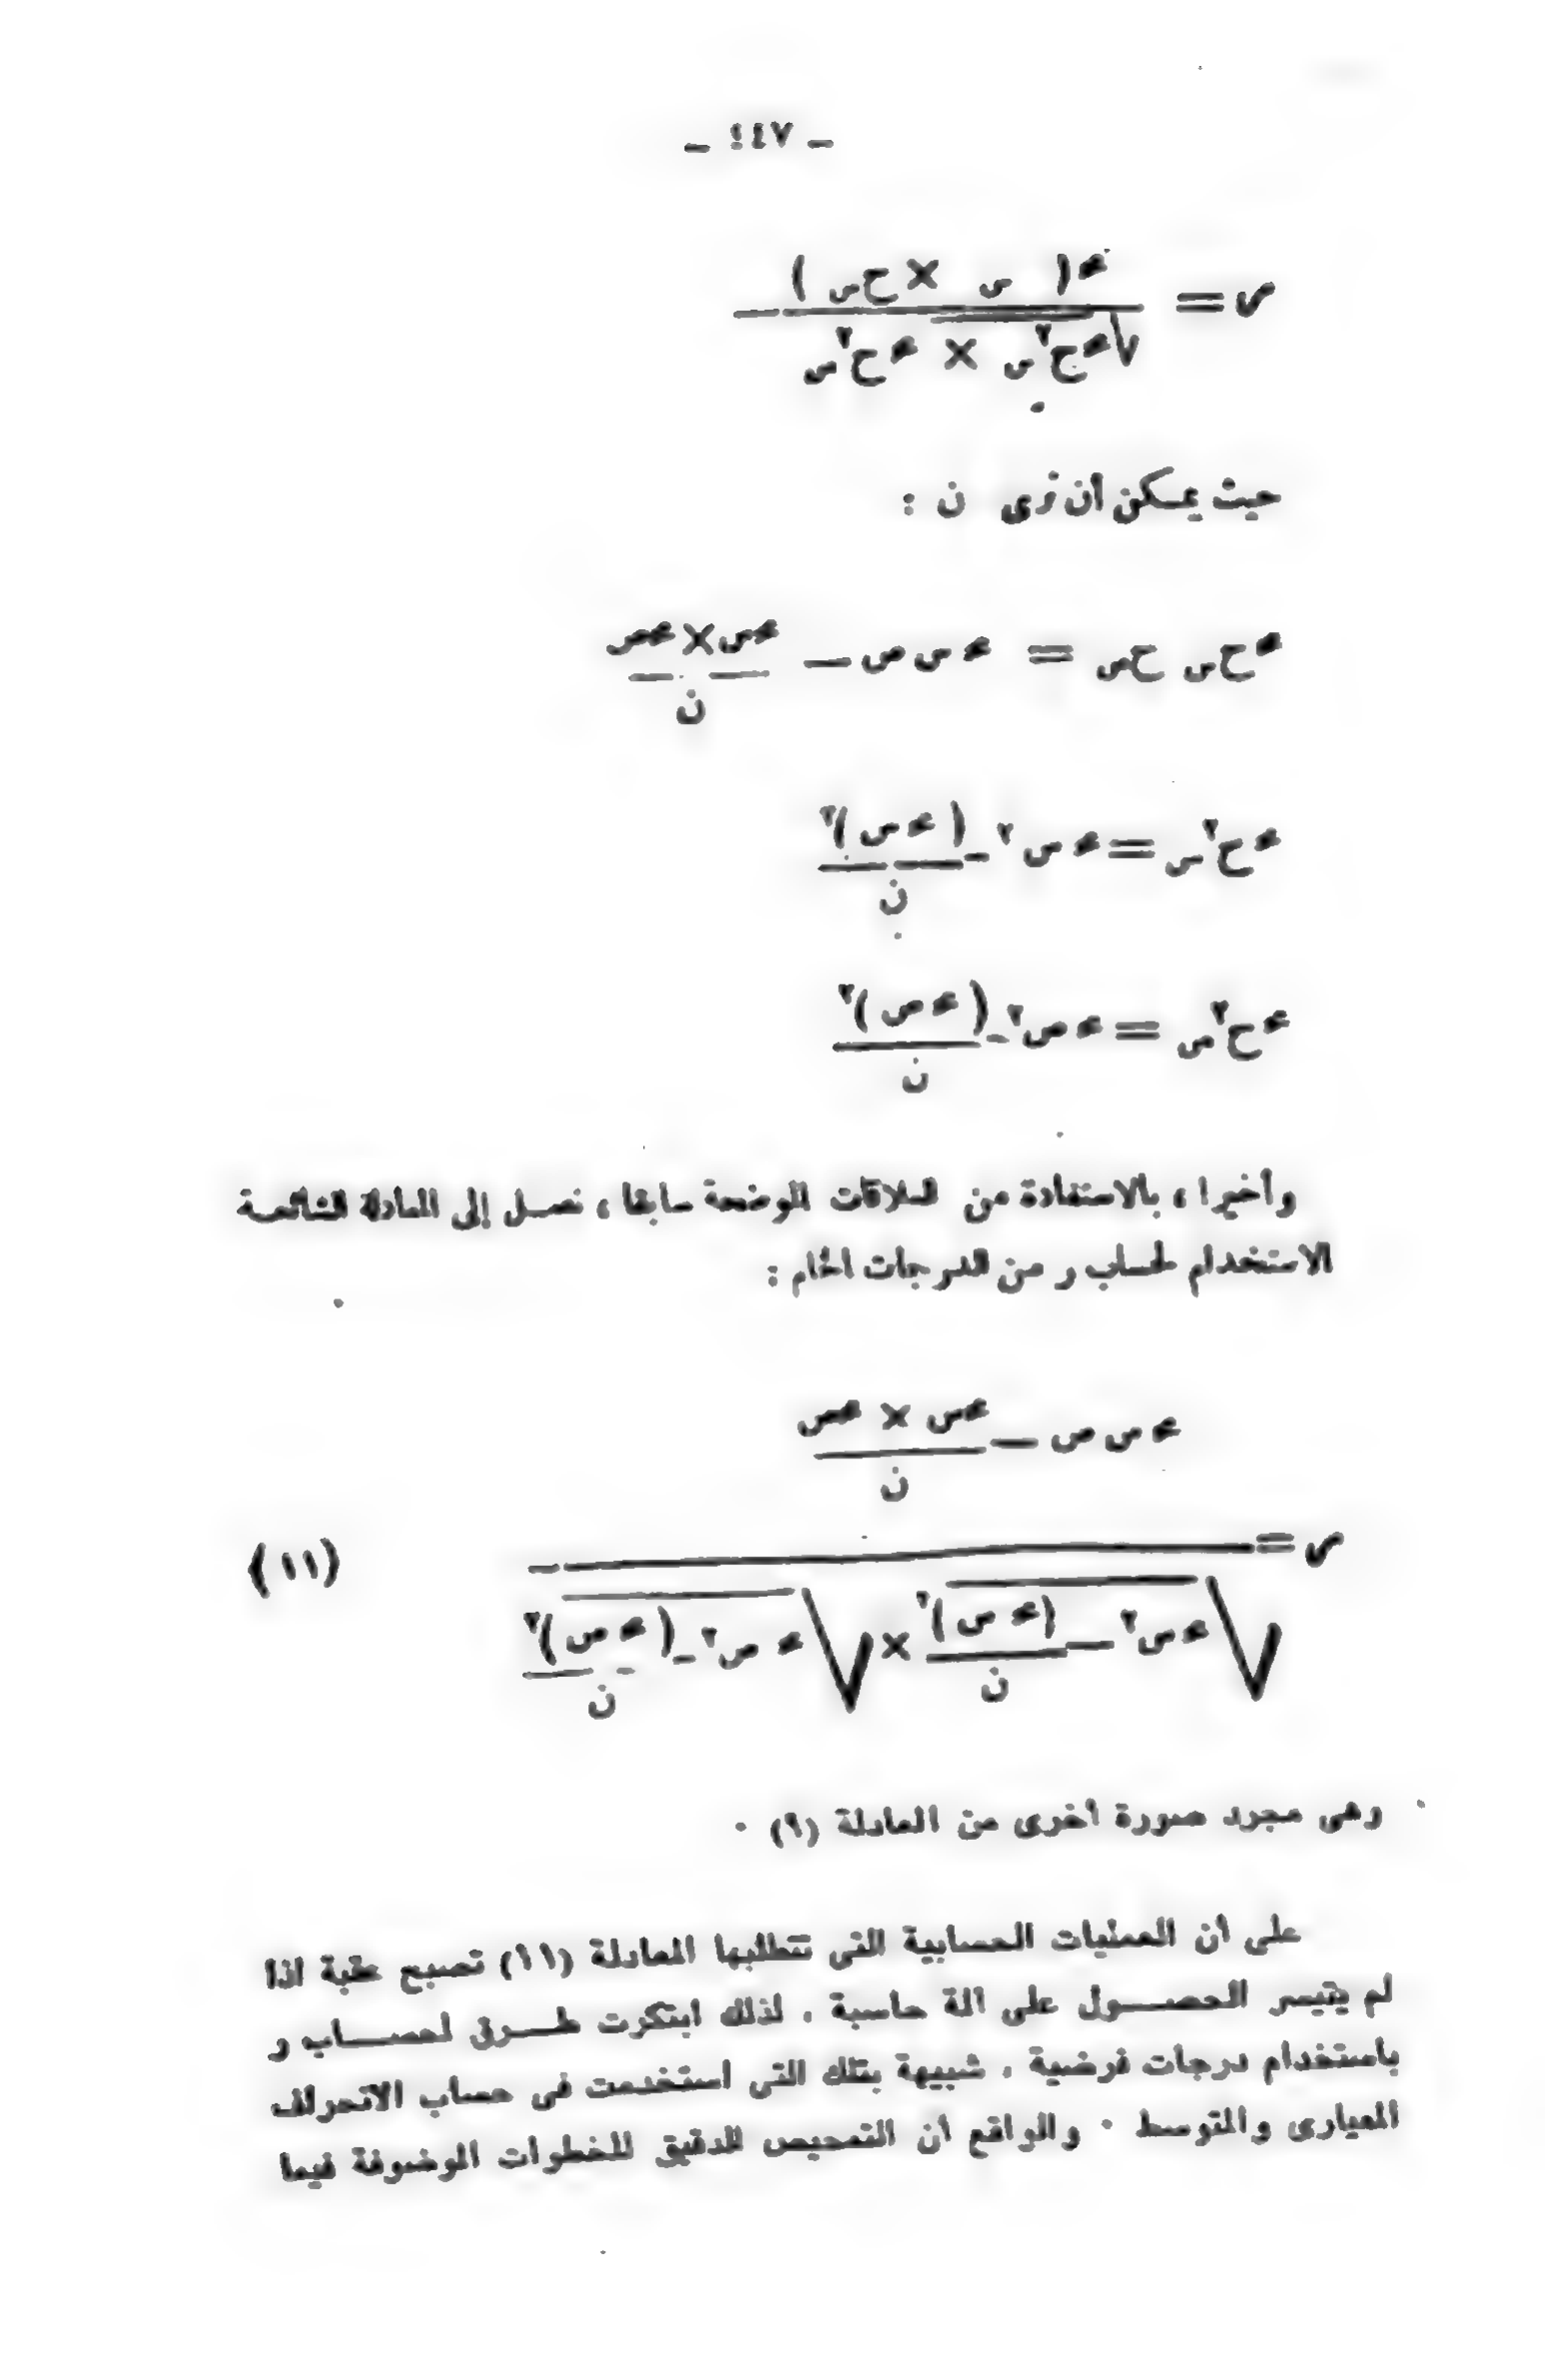 – ٤٤٧ –
ر = مجـ ( س × ح ص ) / √ مجـ ح٢ س × مجـ ح٢ ص
حيث يمكن أن نرى ن :
مجـ ح س ح ص = مجـ س ص – مجـ س × مجـ ص / ن
مجـ ح٢ س = مجـ س٢ – ( مجـ س )٢ / ن
مجـ ح٢ ص = مجـ ص٢ – ( مجـ ص )٢ / ن
وأخيرا ، بالاستفادة من العلاقات الموضحة سابقا ، نصل إلى المعادلة الشائعة
الاستخدام لحساب ر من الدرجات الخام :
مجـ س ص – مجـ س × مجـ ص / ن
ر = ــــــــــ (١١)
√ مجـ س٢ – ( مجـ س )٢ / ن × √ مجـ ص٢ – ( مجـ ص )٢ / ن
وهى مجرد صورة أخرى من المعادلة (٩) ٠
على أن العمليات الحسابية التى تتطلبها المعادلة (١١) تصبح عقبة اذا
لم يتيسر الحصول على آلة حاسبة . لذلك ابتكرت طرق لحساب ر
باستخدام درجات فرضية . شبيهة بتلك التى استخدمت فى حساب الانحراف
المعيارى والمتوسط ٠ والواقع أن التمحيص الدقيق للخطوات الموضوفة فيما